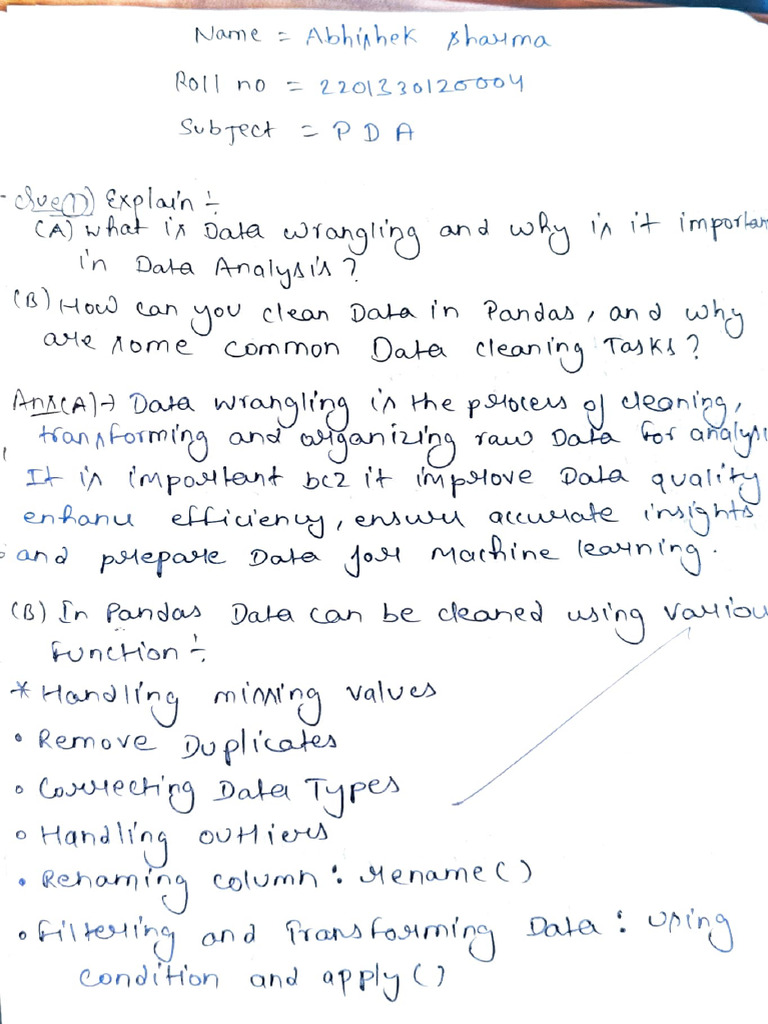 Name = Abhishek Sharma
Roll no = 2201330120004
Subject = P D A
Que(1) Explain :-
(A) What is Data wrangling and why is it importan
in Data Analysis?
(B) How can you clean Data in Pandas, and why
are some common Data cleaning Tasks?
Ans(A)→ Data wrangling is the process of cleaning,
transforming and organizing raw Data for analysi
It is important bcz it improve Data quality
enhanu efficiency, ensure accurate insights
and prepare Data for Machine learning.
(B) In Pandas Data can be cleaned using variou
Function :-
* Handling missing values
• Remove Duplicates
• Correcting Data Types
• Handling outliers
• Renaming column : rename()
• Filtering and Transforming Data : using
condition and apply()